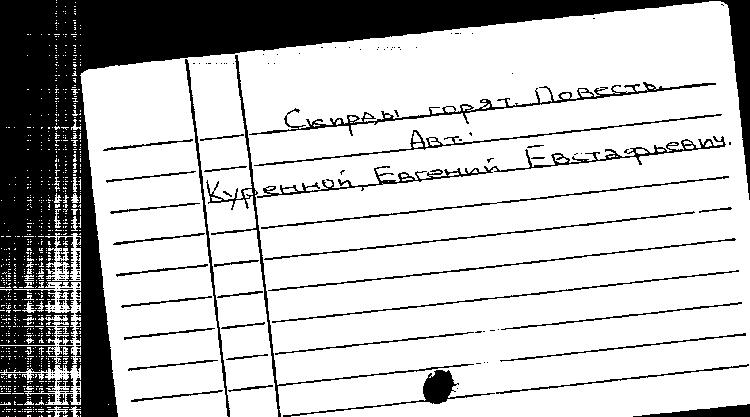 Скирды горят. Повесть.
Авт.:
Куренной, Евгений Евстафьевич.